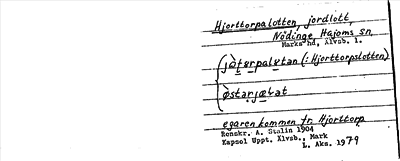 Hjorttorpalotten, jordlott,
Nödinge, Hajoms sn,
Marks hd, Älvsb. l.
(: Hjorttorpslotten)
egaren kommen fr. Hjorttorp
Renskr. A. Stalin 1904
Kapsol Uppt. Älvsb., Mark
L. Aks. 1979